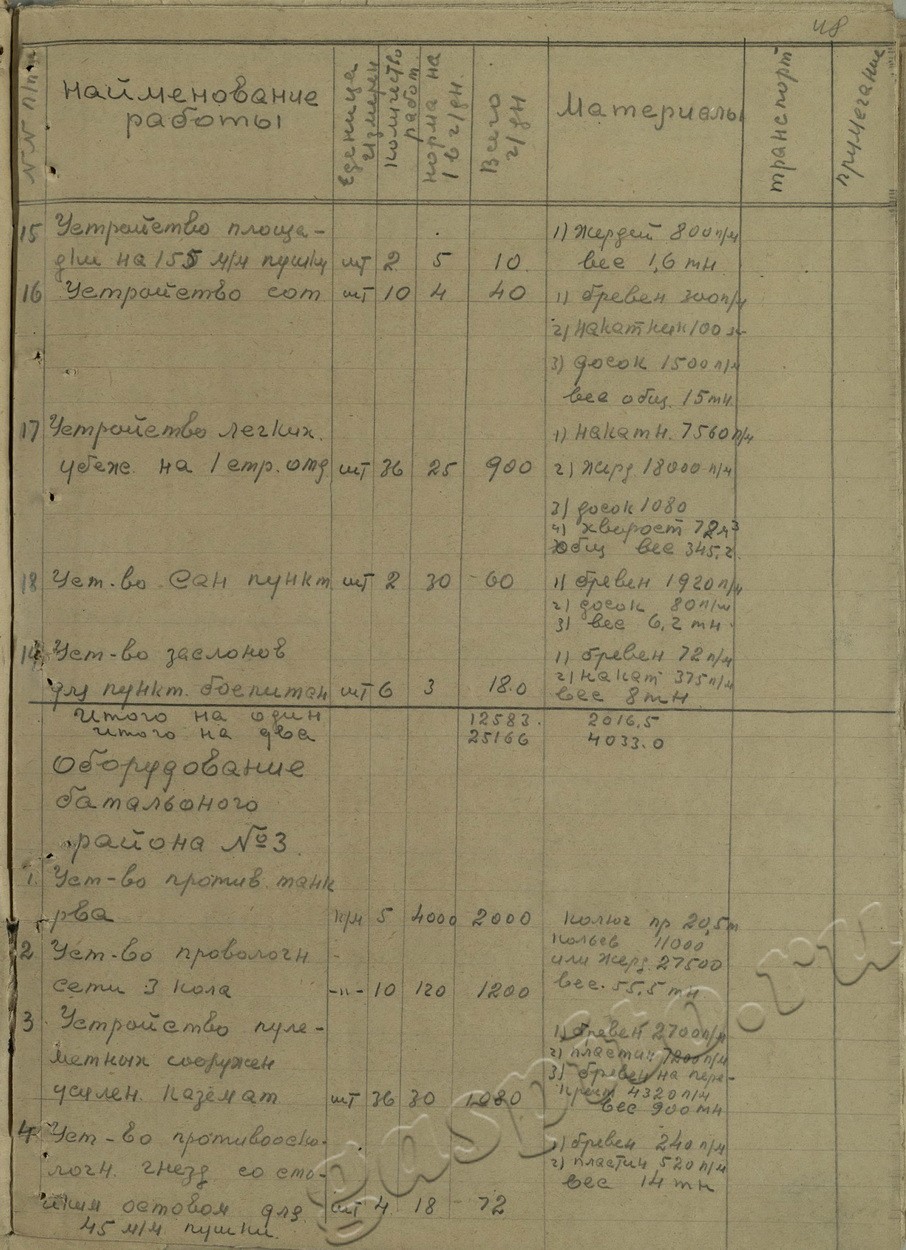 48
NN п/п
Найменование работы
Еденица Измерен
Количество работ
норма на 1 в ч/дн.
Всего ч/дн
Материалы
транспорт
примечание
15 Устройство площа- 1) жердей 800 п/м
дки на 155 м/м пушки шт 2 5 10 вес 1,6 тн.
16 Устройство сот шт 10 4 40 1) бревен 300 п/м
2) накатник 100
3) досок 1500 п/м
вес общ. 15 тн.
17 Устройство легких 1) накатн. 7560 п/м
убеж. на 1 стр. отд. шт 36 25 900 2) жерд. 18000 п/м
3) досок 1080
4) хворост 72 м3
общ вес 345,2.
18 Уст-во Сан пункт шт 2 30 60 1) бревен 1920 п/м
2) досок 80 п/м
3) вес 6,2 тн.
Уст-во заслонов 1) бревен 72 п/м
для пункт. боепитан шт 6 3 18.0 2) накат 375 п/м
вес 8 тн
Итого на один 12583. 2016,5
Итого на два 25166 4033.0
Оборудование
батальоного
района №3
1. Уст-во против. танк
рва к/м 5 4000 2000 Колюч пр 20,5т
кольев 11000
2 Уст-во проволочн - или жерд. 27500
сети 3 кола -"- 10 120 1200 вес. 55,5 тн
3 Устройство пуле- 1) бревен 2700 п/м
метных сооружен 2) пластин 7200 п/м
3) бревен на пере-
усилен. Каземат шт 36 30 1080 крыт 4320 п/м
вес 900 тн
4 Уст-во противооско- 1) бревен 240 п/м
лочн. гнезд со сто- 2) пластин 520 п/м
вес 14 тн
остовом для шт 4 18 72
45 м/м пушки.
gaspiko.ru